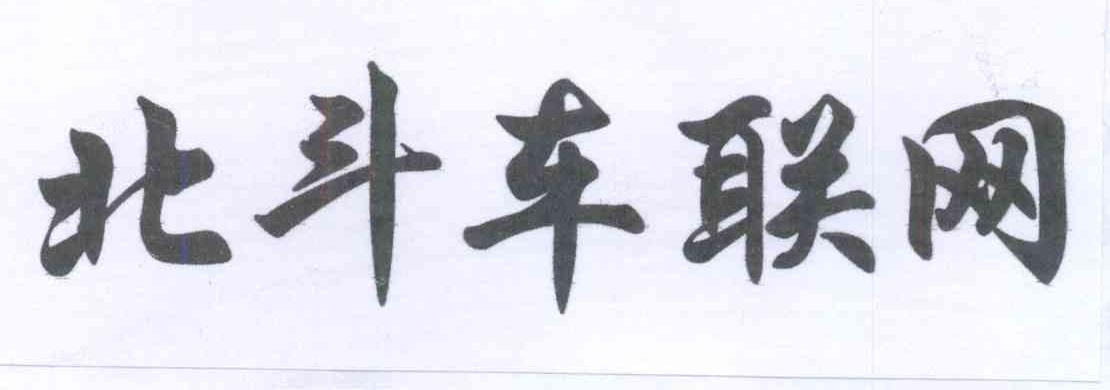 北斗车联网